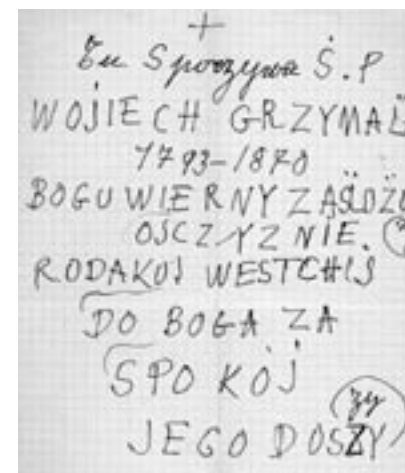 +
Tu Spoczywa Ś.P
WOJIECH GRZYMAŁ
1793-1870
BOGU WIERNY
OJSCZYZNIE.
RODAKOJ WESTCHIJ
DO BOGA ZA
SPOKÓJ
zy
JEGO DOSZY